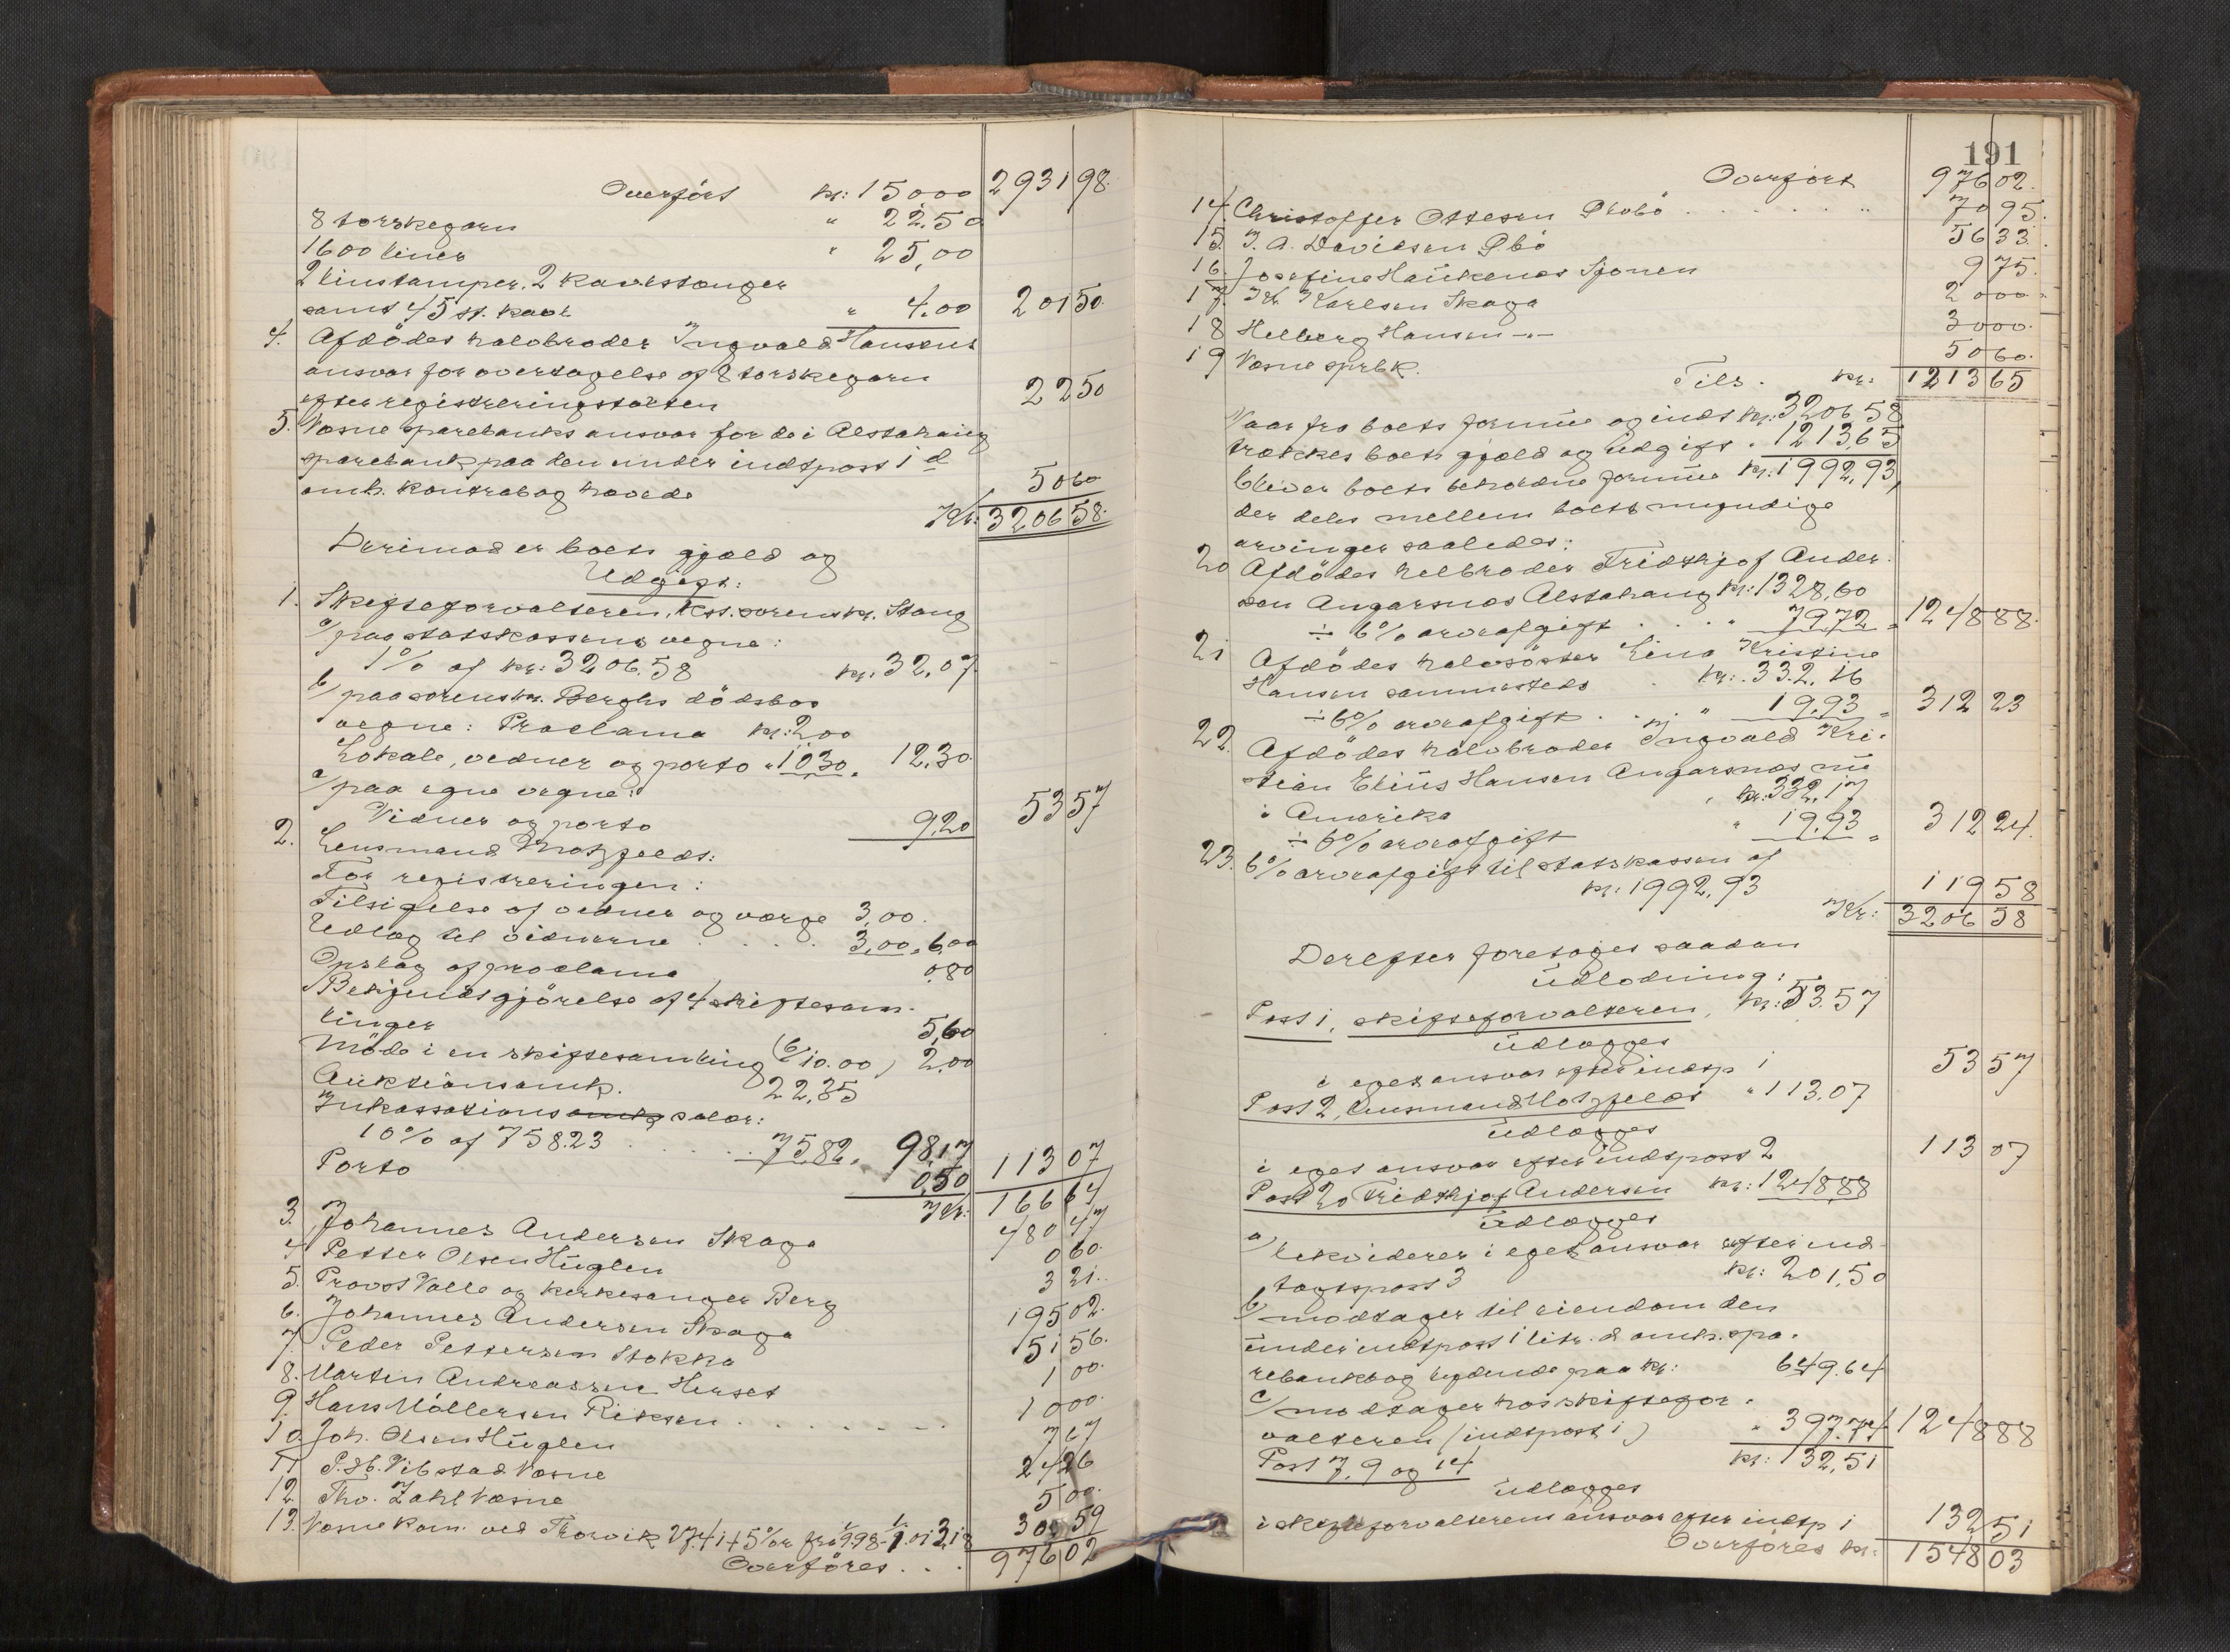 Overført kr: 150,00 2931 98
8 torskegarn " 22.50
1600 liner " 25,00
2 linstamper, 2 kavlstænger
samt 45 st. kavl " 4.00 201 50
4. Afdödes halvbroder Ingvald Hansens
ansvar for overtagelse af 8 torskegarn
efter registreringstaxten 22 50
5. Væsne sparebanks ansvar for de i Alstahaug
sparebank paa den under indtpost 1 d
omh. kontrabog havede 50 60
Kr: 3206 58
Derimod er boets gjæld og
Udgift:
1. Skifteforvalteren, kst. sorenskr. Stang
a/ paa statskassens vegne:
1% af kr: 3206.58 kr. 32,07
b/ paa sorenskr. Berghs dödsbos
vegne: Proclama kr: 2.00
Lokale, vidner og porto " 10.30 " 12.30
c/ paa egne vegne:
Vidner og porto 9.20 53 57
2. Lensmand Motzfeldt:
For registreringen:
Tilsigelse af vidner og værge 3,00.
Udlæg til vidnerne 3,00 " 6,00
Opslag af proclama 0,80
Bekjendtgjörelse af 4 skiftesam-
linger 5,60
Möde i en skiftesamling (6/10.00) 2,00
Auktionsomk. 22,35
Inkassationssalær:
10% af 758.23 75.82 " 98,17
Porto 0,50 113 07
Kr: 166 64
3. Johannes Andersen Skaga 480 47
4 Petter Olsen Hüglen 0 60
5. Provst Valle og kirkesanger Berg 3 21
6. Johannes Andersen Skaga 195 02
7. Peder Pettersen Stokka 51 56
8. Marten Andreassen Herset 1 00
9. Hans Möllersen Riksen 10 00
10. Joh. Olsen Hüglen 7 67
11 P. Vibstad Væsne 24 26
12 Tho. Zahl Væsne 5 00
13. Væsne kom. ved Thorvik 30 59
Overføres 976 02
191
Overført 976 02
14. Christoffer Ottesen 70 95
15. J. A. Davidsen 56 33
16. Josefine Haukenes Sjonen 9 75
17. Kr. Karlsen Skaga 20 00
18 Helberg Hansen -"- 30 00
19 Væsne sprbk. 50 60
Tils. kr: 1213 65
Naar fra boets formue og indt kr: 3206 58
trækkes boets gjæld og udgift " 1213,65
bliver boets beholdne formue kr: 1992,93,
der deles mellem boets myndige
arvinger saaledes:
20 Afdödes helbroder Fridthjof Ander-
sen Angarsnæs Alstahaug kr: 1328,60
÷ 6% arveafgift " 79,72 " 1248 88
21 Afdödes halvsöster Lina Kristine
Hansen sammesteds kr: 332.16
÷ 6% arveafgift " 19.93 " 312 23
22. Afdödes halvbroder Ingvald Kri-
stian Elius Hansen Angarsnæs nu
i Amerika kr: 332,17
÷ 6% arveafgift " 19.93 " 312 24
23. 6% arveafgift til statskassen af
kr: 1992,93 119 58
Kr: 3206 58
Derefter foretages saadan
udlodning:
Post 1, skifteforvalteren, kr: 53.57
udlægges
i eget ansvar efter indtp 1 53 57
Post 2, lensmand Motzfeldt " 113.07
udlægges
i eget ansvar efter indtpost 2 113 07
Post 20 Fridthjof Andersen kr: 1248,88
udlægges
a/ likviderer i eget ansvar efter ind-
tægtspost 3 kr: 201,50
b/ modtager til eiendom den
under indtpost 1 litr. d omh. spa-
rebankbog lydende paa kr: 649.64
c/ modtager hos skiftefor-
valteren (indtpost 1) " 397.74 1248 88
Post 7, 9 og 14 kr: 132,51
udlægges
i skifteforvalterens ansvar efter indtp 1 132 51
Overføres kr: 1548 03